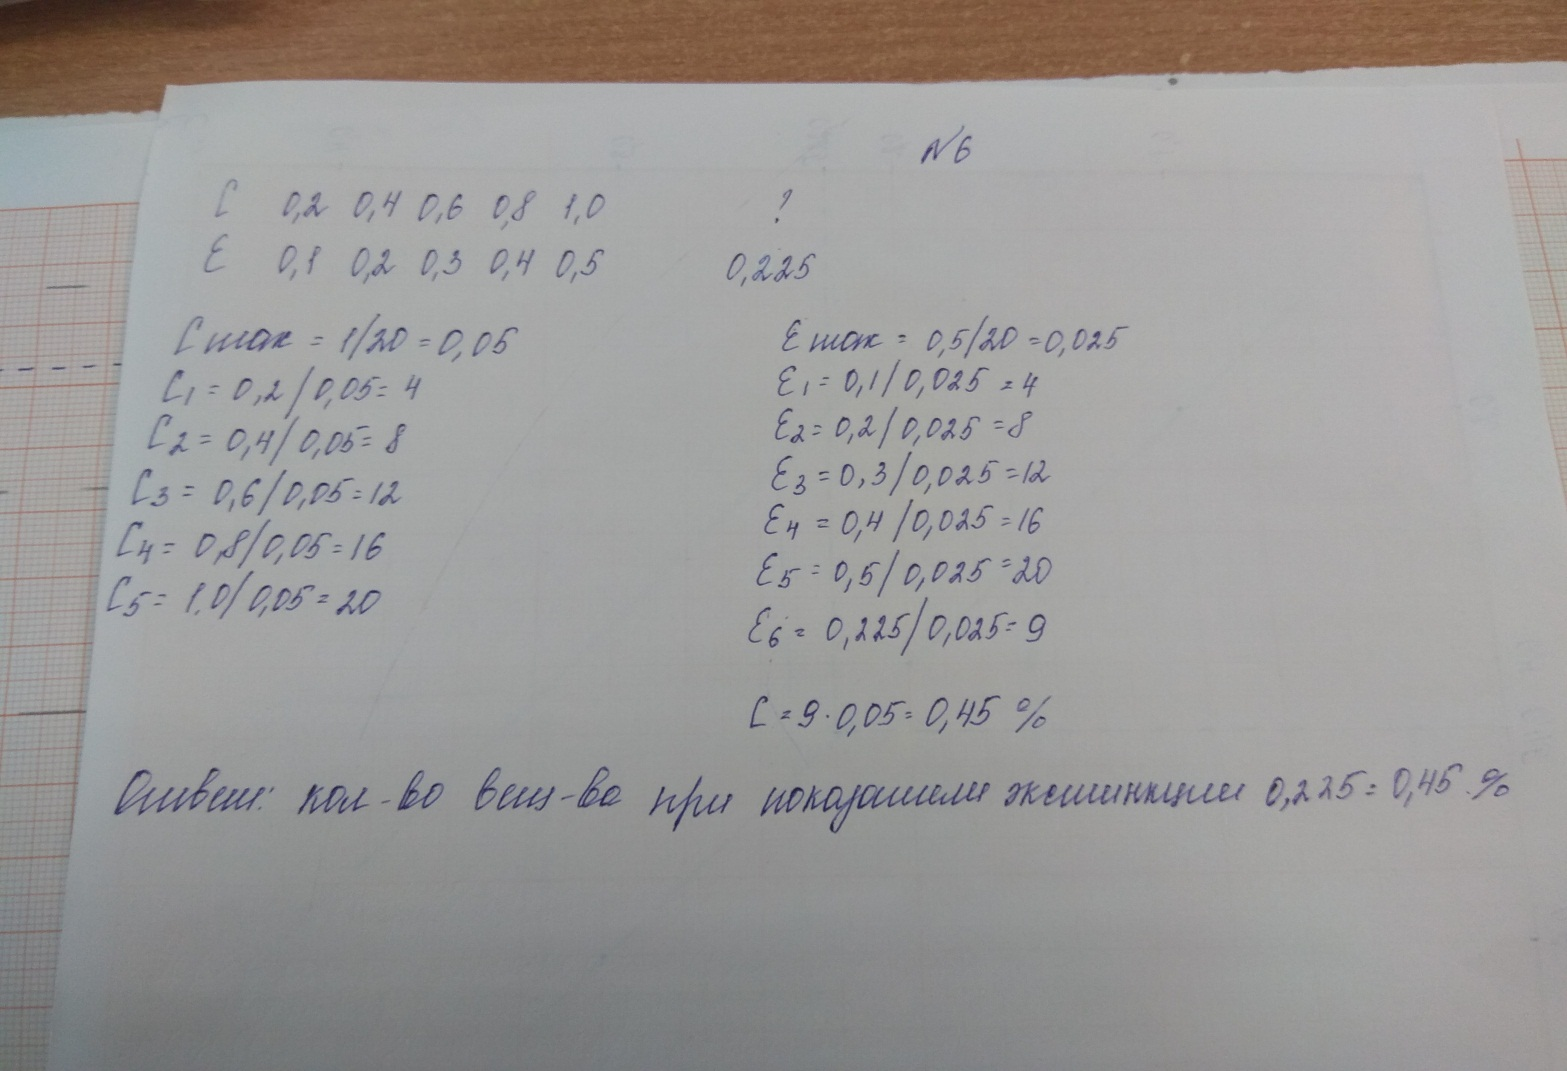 №6
C 0,2 0,4 0,6 0,8 1,0 ?
E 0,1 0,2 0,3 0,4 0,5 0,225
C max = 1/20 = 0,05
C1 = 0,2/0,05 = 4
C2 = 0,4/0,05 = 8
C3 = 0,6/0,05 = 12
C4 = 0,8/0,05 = 16
C5 = 1.0/0,05 = 20
E max = 0,5/20 = 0,025
E1 = 0,1/0,025 = 4
E2 = 0,2/0,025 = 8
E3 = 0,3/0,025 = 12
E4 = 0,4/0,025 = 16
E5 = 0,5/0,025 = 20
E6 = 0,225/0,025 = 9
C = 9 · 0,05 = 0,45 %
Ответ: кол-во вещ-ва при показатели экстинкции 0,225 = 0,45 %